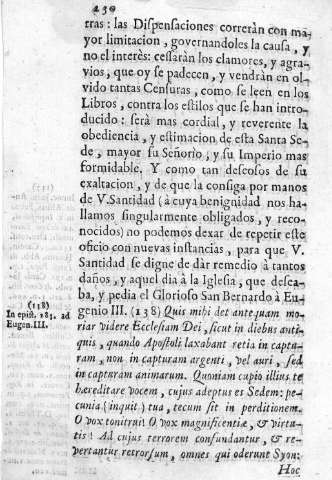 230
tras: las Dispensaciones correràn con ma-
yor limitacion, governandoles la causa, y
no el interès: cessaràn los clamores, y agra-
vios, que oy se padecen, y vendràn en ol-
vido tantas Censuras, como se leen en los
Libros, contra los estilos que se han intro-
ducido: serà mas cordial, y reverente la
obediencia, y estimacion de esta Santa Se-
de, mayor su Señorio, y su Imperio mas
formidable. Y como tan deseosos de su
exaltacion, y de que la consiga por manos
de V.Santidad (à cuya benignidad nos ha-
llamos singularmente obligados, y reco-
nocidos) no podemos dexar de repetir este
oficio con nuevas instancias, para que V.
Santidad se digne de dàr remedio à tantos
daños, y aquel dia à la Iglesia, que desea-
ba, y pedia el Glorioso San Bernardo à Eu-
genio III. (138) Quis mihi det antequam mo-
riar videre Ecclesiam Dei, sicut in diebus anti-
quis, quando Apostoli laxabant retia in captu-
ram, non in capturam argenti, vel auri, sed
in capturam animarum. Quoniam cupio illius te
hæreditare vocem, cujus adeptus es Sedem: pe-
cunia (inquit) tua, tecum sit in perditionem.
O vox tonitrui! O vox magnificentiæ, & virtu-
tis! Ad cujus terrorem confundantur, & re-
vertantur retrorsum, omnes qui oderunt Syon:
Hoc
(138)
In epist. 283. ad
Eugen.III.